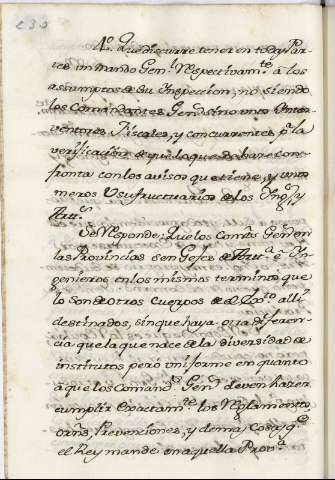 230
4.º Que discurre tener en todas Par-
tes un mando Gen.l Respectivam.te â los
assumptos de su Inspeccion, no siendo
los Comandantes Gen.s sino unos Inter-
ventores Fiscales, y concurrentes p.a la
verificacion de que lo que se hace con-
fronta con los avisos que tiene, y unos
meros Usufructuarios de los Ing.os y
Art.a
Se Responde: Que los Com.tes Gen.s en
las Provincias son Gefes de Art.a è In-
genieros en los mismos terminos que
lo son de otros Cuerpos de el Exp.to alli
destinados, sin que haya otra diferen-
cia que la que nace de la diversidad de
institutos pero uniforme en quanto
a que los Comand.s Gen.s deven hacer
cumplir Exactam.te los Reglamentos
orñs, Prevenciones, y demas cosas q.e
el Rey mande en aquella Prov.a